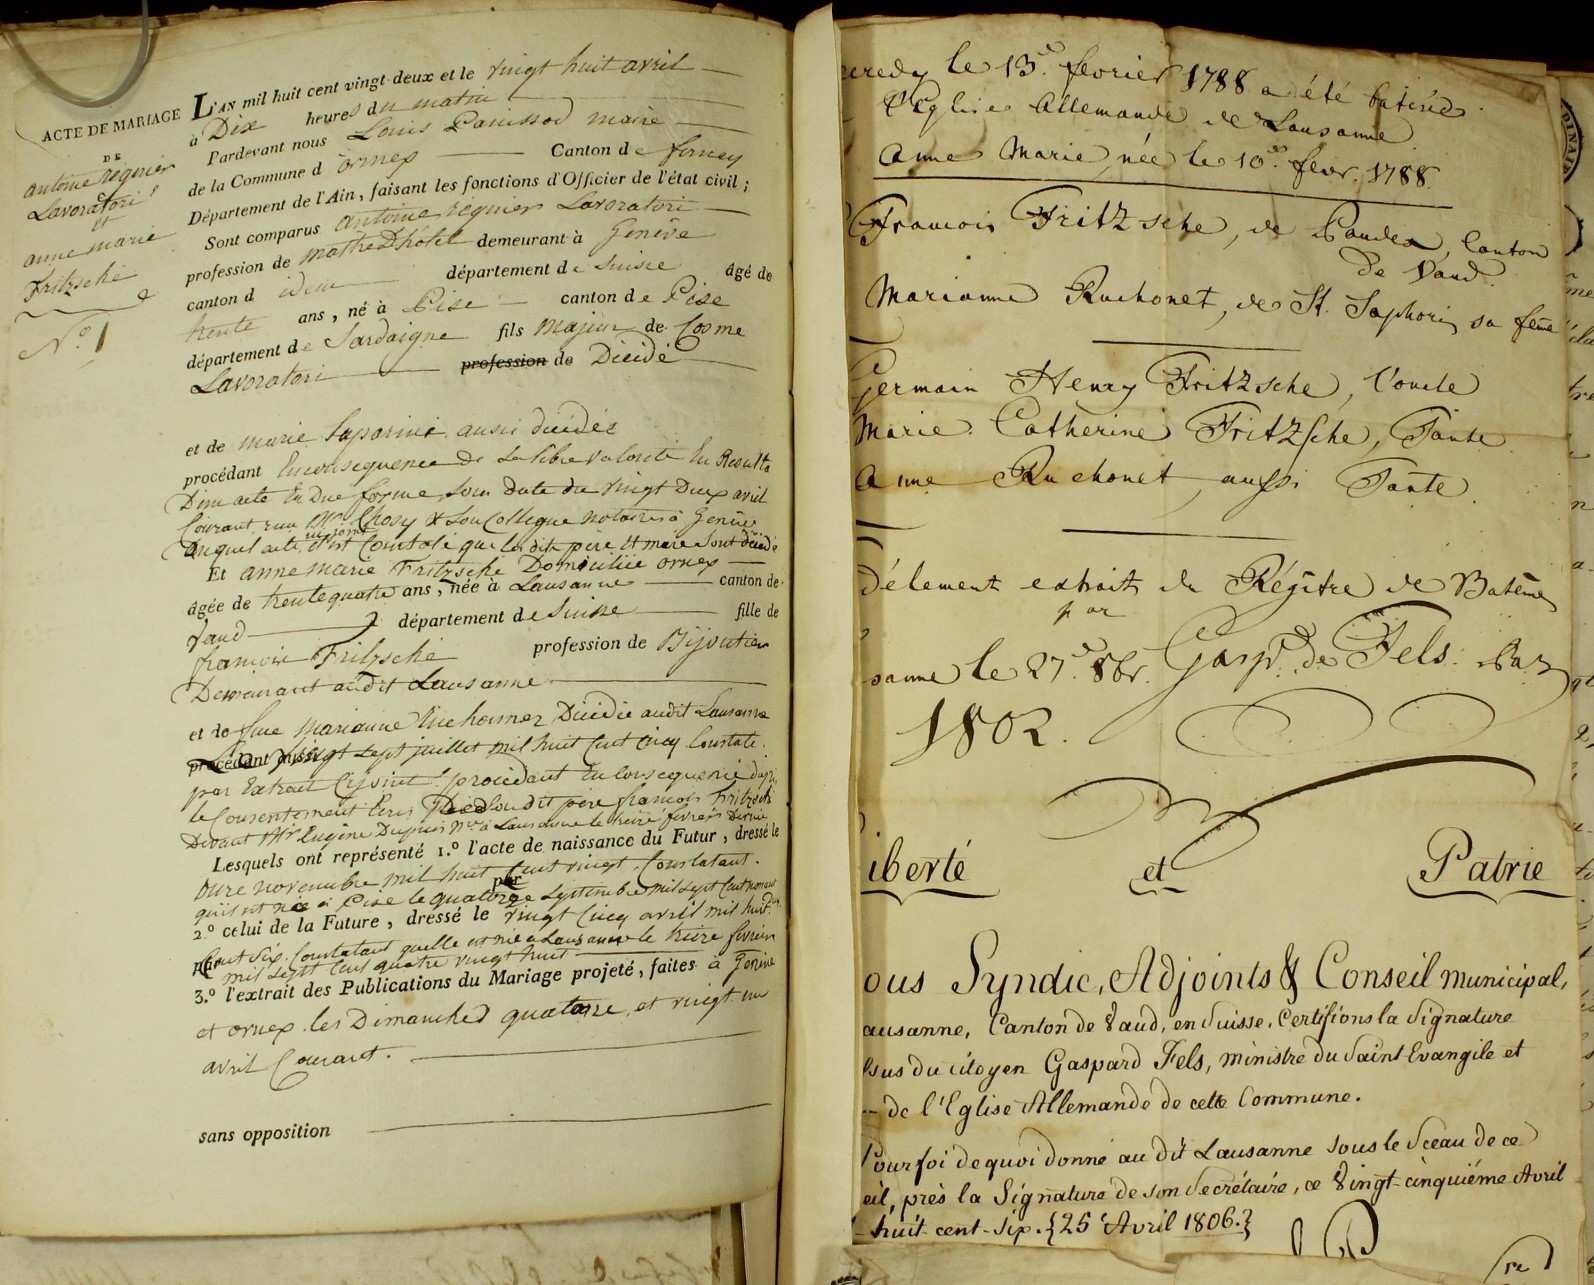 ACTE DE MARIAGE
DE
antoine régnier
Lavoratori
et
anne marie
Fritzsché
N.º 1
L'AN mil huit cent vingt-deux et le vingt huit avril
à Dix heures du matin
Pardevant nous Louis Panissod maire
de la Commune d'ornex Canton de ferney
Département de l'Ain, faisant les fonctions d'Officier de l'état civil ;
Sont comparus antoine regnier Lavoratori
profession de mathe D'hôtel demeurant à Genêve
canton d idem département de Suisse âgé de
trente ans, né à Pise canton de Pise
département de Sardaigne fils majeur de Cosme
Lavoratori profession de Décidé
et de marie aussi décidée
procédant En consequence de sa libre volonté En Resulte
D'un acte En Due forme sous date du vingt Deux avril
Courant reçu Mr Chosy & son Collegue notaires à Genêve
Duquel acte il est Constaté que les dits père et mere sont décédé
Et anne marie Fritzsche Domiciliée ornex
âgée de trente quatre ans, née à Lausanne canton de
Vaud département de Suisse fille de
francois Fritzsché profession de Bijoutier
Demeurant audit Lausanne
et de feue marianne Décédée audit Lausanne
procédant aussi
Le vingt sept juillet mil huit Cent Cinq Constaté
par Extrait Cijoint procédant En Consequence
le Consentement Dudit père francois Fritzsché
Devant Mr Eugène Dupuis Nre à Lausanne le treize février Dernier
Lesquels ont représenté 1.º l'acte de naissance du Futur, dressé le
onze novembre mil huit Cent vingt Constatant
par
qu'il est née à Pise le quatorze Septembre mil sept Cent nonante
2.º celui de la Future, dressé le vingt Cinq avril mil huit
par
Cent Six Constatant quelle est née à Lausanne le treize février
mil Sept Cent quatre vingt huit
3.º l'extrait des Publications du Mariage projeté, faites à Genêve
et ornex les Dimanches quatorze et vingt un
avril Courant.
sans opposition
credy le 13e fevrier 1788 a été batisée
l'Eglise Allemande de Lausanne
Anne Marie, née le 10e fevr. 1788.
Francois Fritzsche, de Paudex, Canton
de Vaud.
Marianne Ruchonet, de St. Saphorin sa feme
Germain Henry Fritzsche, l'oncle
Marie Catherine Fritzsche, Tante
Anne Ruchonet aussi Tante.
délement extrait du Régître de Batême
par
sanne le 27e 8br. Gaspd. de Fels
1802.
iberté et Patrie
ous Syndic, Adjoints & Conseil municipal,
ausanne, Canton de Vaud, en Suisse, Certifions la Signature
sus du citoyen Gaspard Fels, ministre du Saint Evangile et
de l'Eglise Allemande de cette Commune.
Pour foi de quoi donné au dit Lausanne sous le Sceau de ce
eil, près la Signature de son Secrétaire, ce Vingt-cinquième Avril
huit-cent-six. {25 Avril 1806.}